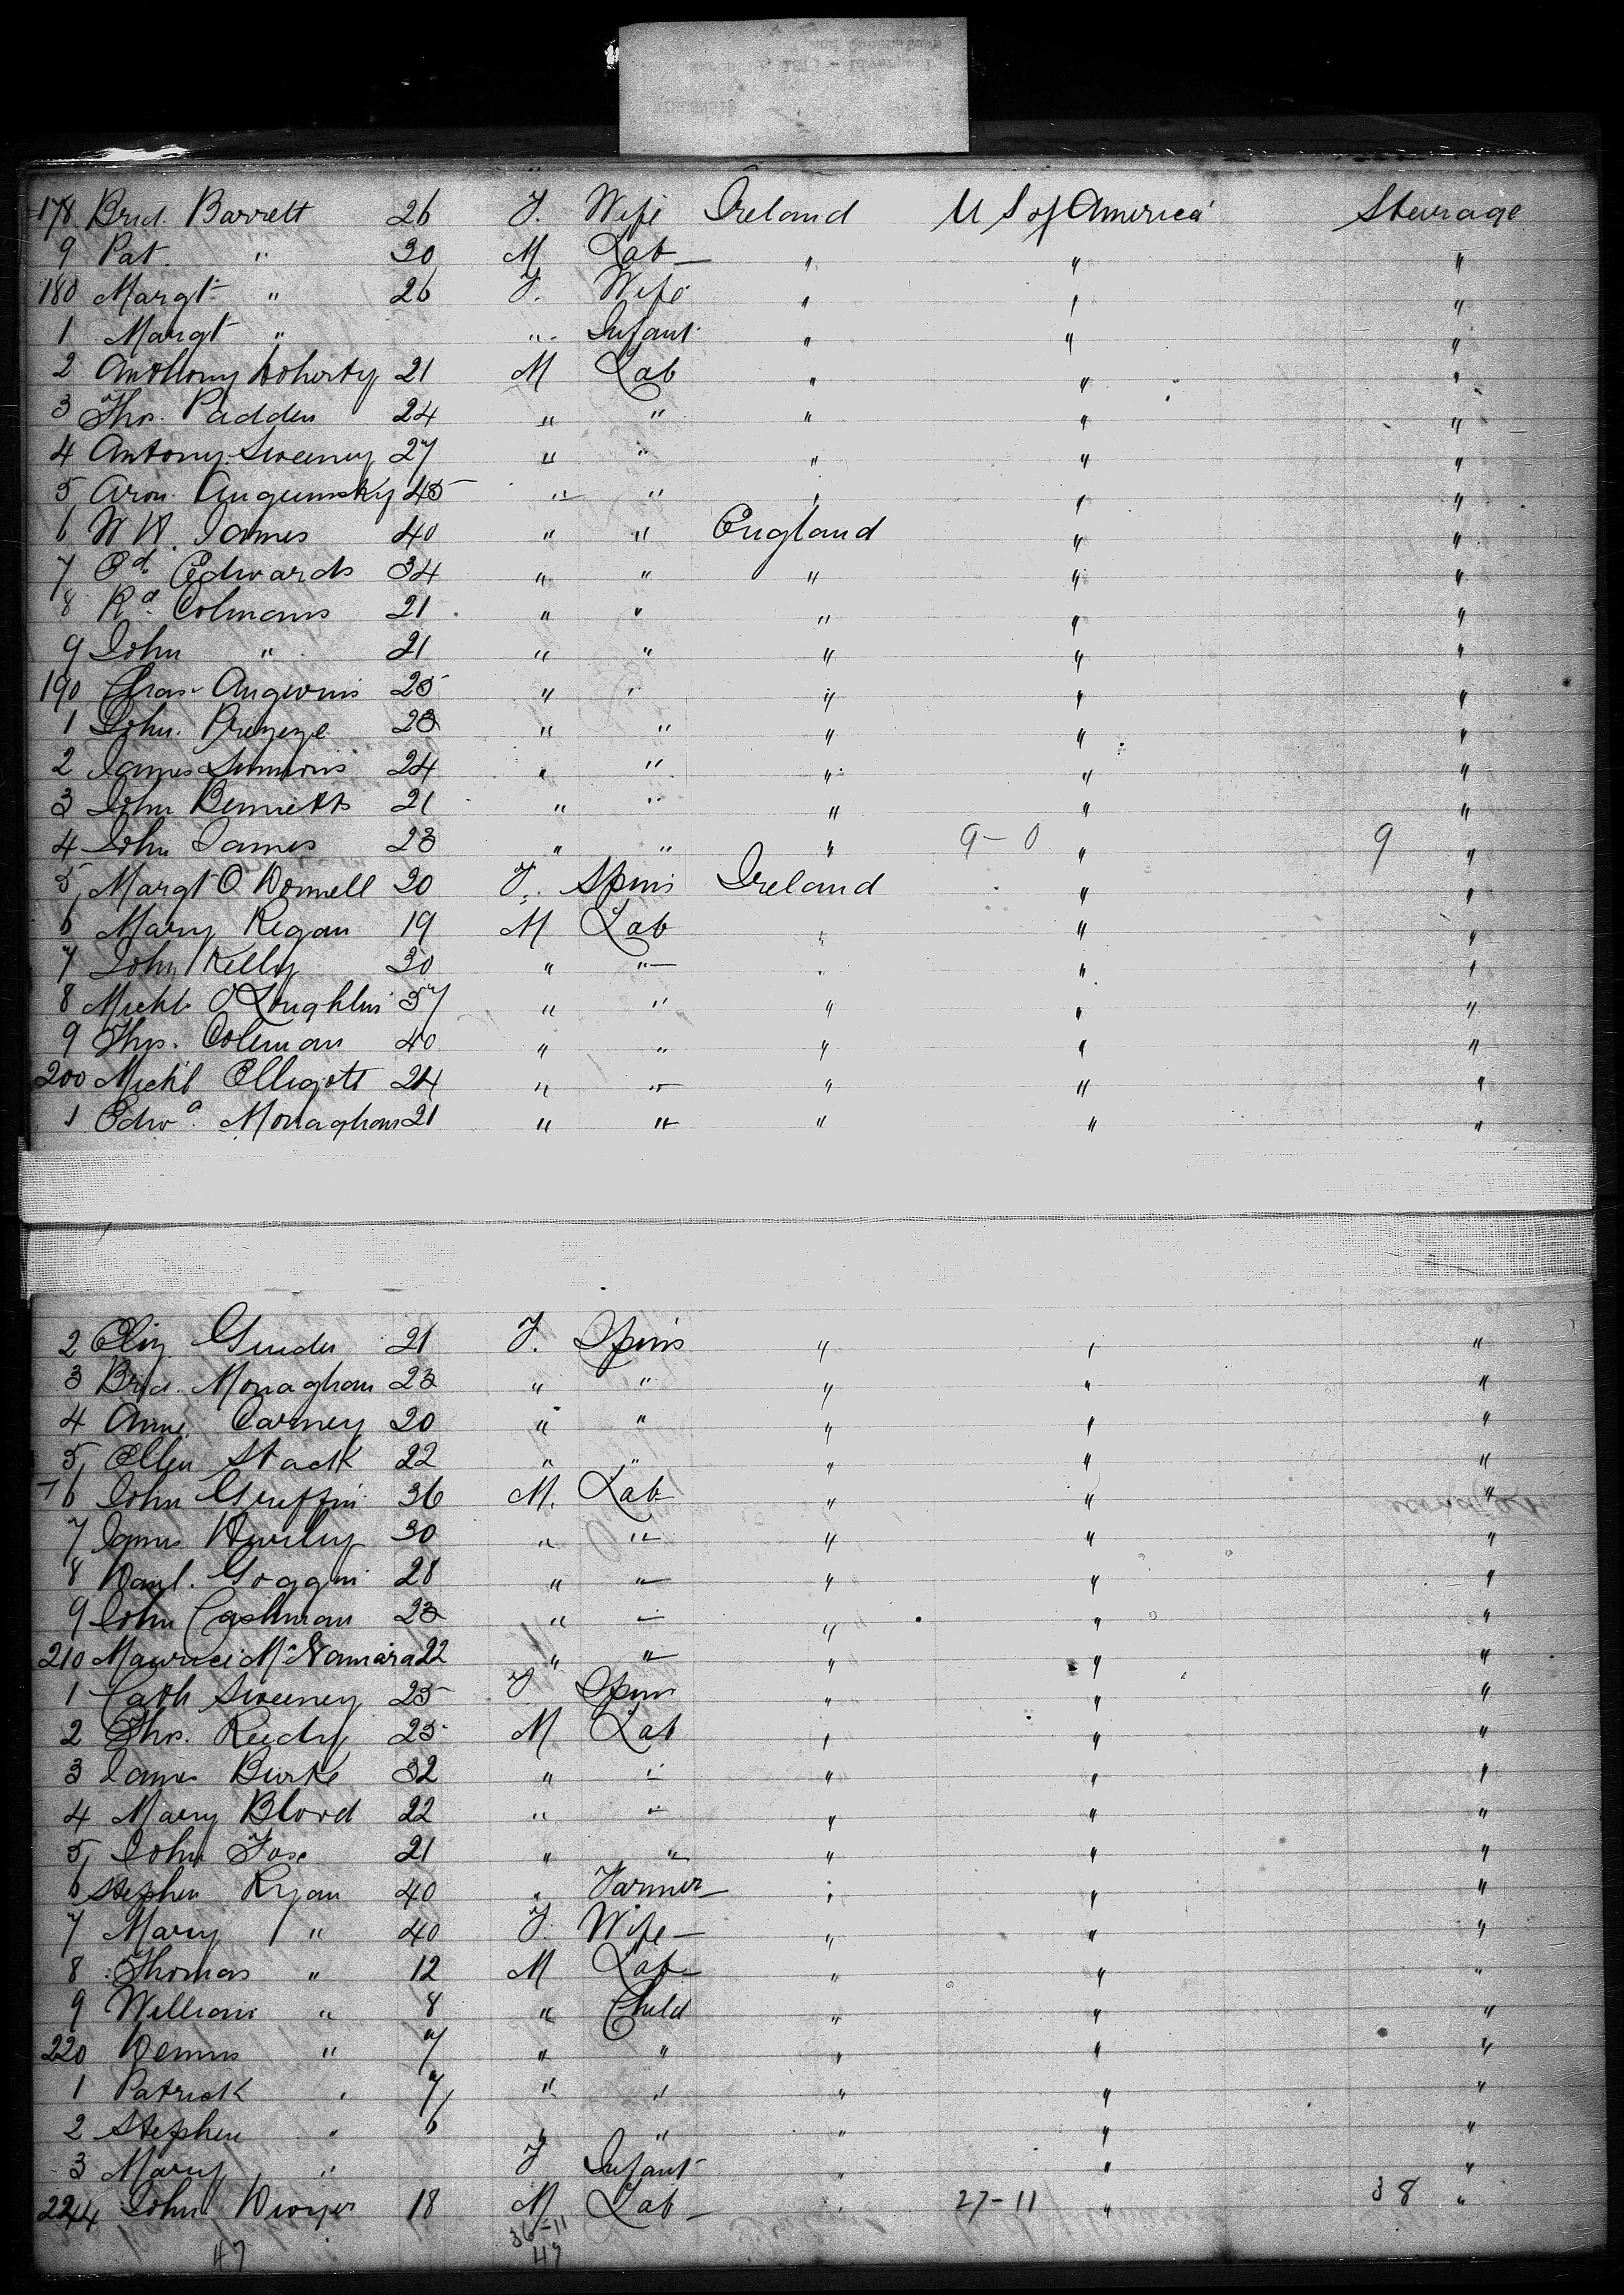 178 Brid. Barrett 26 F. Wife Ireland U S of America Steerage
9 Pat. " 30 M Lab " " "
180 Margt " 26 F. Wife " " "
1 Margt " " Infant " " "
2 Anthony Doherty 21 M Lab " " "
3 Thos. Padden 24 " " " " "
4 Antony Sweeney 27 " " " " "
5 Aron. Augumsky 45 " " " " "
6 W W. James 40 " " England " "
7 Ed. Edwards 34 " " " " "
8 Rd. Colmans 21 " " " " "
9 John " 21 " " " " "
190 Chas. Angwins 25 " " " " "
1 John. 23 " " " " "
2 James Simmons 24 " " " " "
3 John Bennetts 21 " " " " "
4 John James 23 " " " 9-0 " 9 "
5 Margt O Donnell 20 F. Spins Ireland " "
6 Mary Regan 19 M Lab " " "
7 John Kelly 30 " " " " "
8 Michl O'Loughlin 37 " " " " "
9 Thos. Coleman 40 " " " " "
200 Michl Elligott 24 " " " " "
1 Edwd. Monaghan 21 " " " " "
2 Eliz. 21 F. Spins " " "
3 Brid. Monaghan 23 " " " " "
4 Anne. Carney 20 " " " " "
5 Ellen Stack 22 " " " " "
6 John Griffin 36 M. Lab " " "
7 James Hurley 30 " " " " "
8 Danl. Goggin 28 " " " " "
9 John Cashman 23 " " " " "
210 Maurice McNamara 22 " " " " "
1 Cath Sweeney 25 F Spins " " "
2 Thos. Reidy 25 M Lab " " "
3 James Burke 32 " " " " "
4 Mary Blood 22 " " " " "
5 John Fox 21 " " " " "
6 Stephen Ryan 40 " Farmer " " "
7 Mary " 40 F. Wife " " "
8 Thomas " 12 M Lab " " "
9 William " 8 " Child " " "
220 Dennis " 7 " " " " "
1 Patrick " 7 " " " " "
2 Stephen " 6 " " " " "
3 Mary " F Infant " " "
224 John Dwyer 18 M Lab " 27-11 " 38 "
47 36-11
47